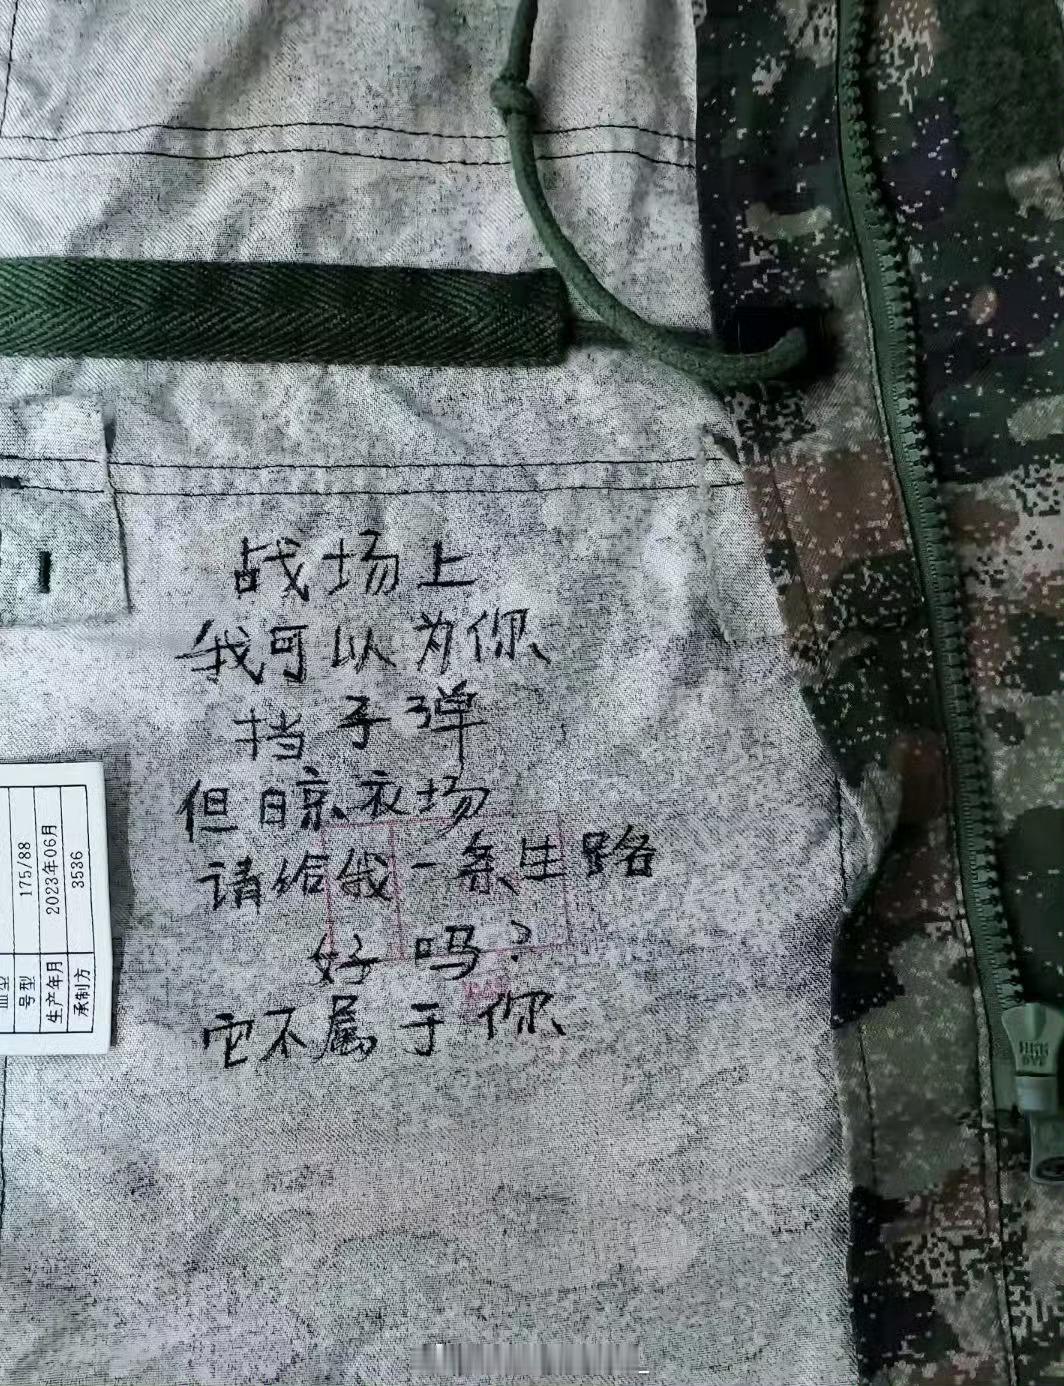 战场上
我可以为你
挡子弹
但晾衣场
请给我一条生路
好吗?
它不属于你
号型 175/88
生产年月 2023年06月
承制方 3536